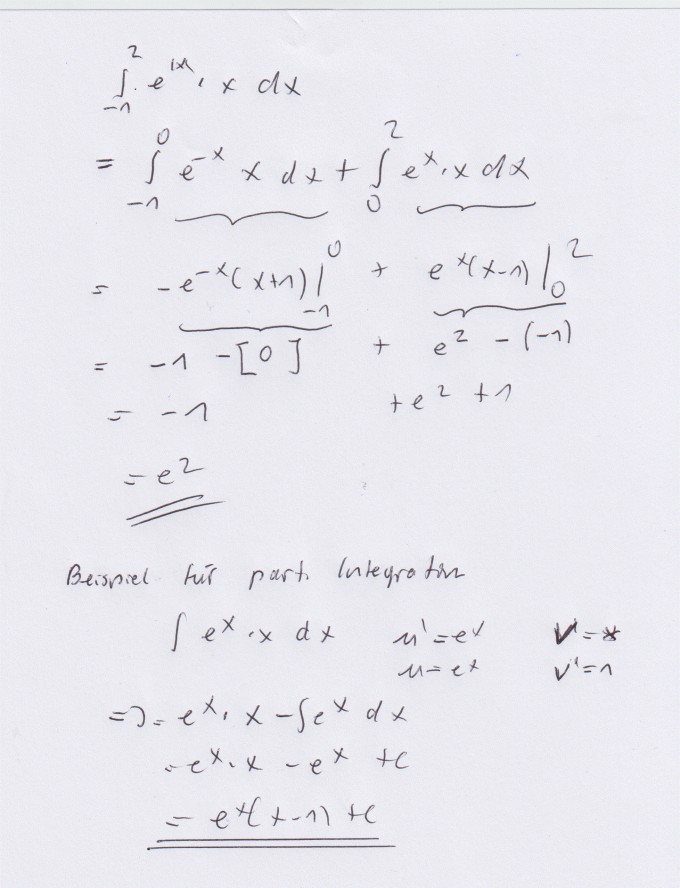 ∫₋₁² e^|x| · x dx
= ∫₋₁⁰ e^-x x dx + ∫₀² e^x · x dx
= -e^-x (x+1) |₋₁⁰ + e^x(x-1) |₀²
= -1 -[0] + e² - (-1)
= -1 + e² + 1
= e²
Beispiel für part. Integration
∫ e^x · x dx u' = e^x v = x
u = e^x v' = 1
=> = e^x · x - ∫ e^x dx
= e^x · x - e^x + c
= e^x (x-1) + c